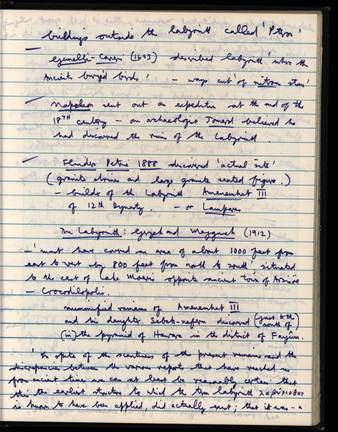 buildings outside the labyrinth called 'Petrin'
— Gemelli-Careri (1693) described labyrinth 'where the
Ancients buryed birds' — ways cut 'of
— Napoleon sent out an expedition at the end of the
18TH century — an archaeologist Jomard believed he
had discovered the ruins of the Labyrinth.
— Flinders Petrie 1888 discovered 'actual site'
(granite shrine and large granite seated figure.)
— builder of the Labyrinth Amenemhat III
of 12th Dynasty. — or
The Labyrinth: and (1912)
— 'must have covered an area of about 1000 feet from
east to west by 800 feet from north to south', situated
to the east of Lake Moeris opposite ancient town of Arsinoe
— Crocodilopolis.
mummified remains of Amenemhat III
and his daughter Sebek-nefru discovered (just to the north of)
(in) the pyramid of Hawara in the district of Fayûm.
'In spite of the scantiness of the present remains and the
discrepancies between the various reports that have reached us
from ancient times we can at least be reasonably certain that
this the earliest structure to which the term labyrinth λαβύρινθος
is known to have been applied, did actually exist; that it was a